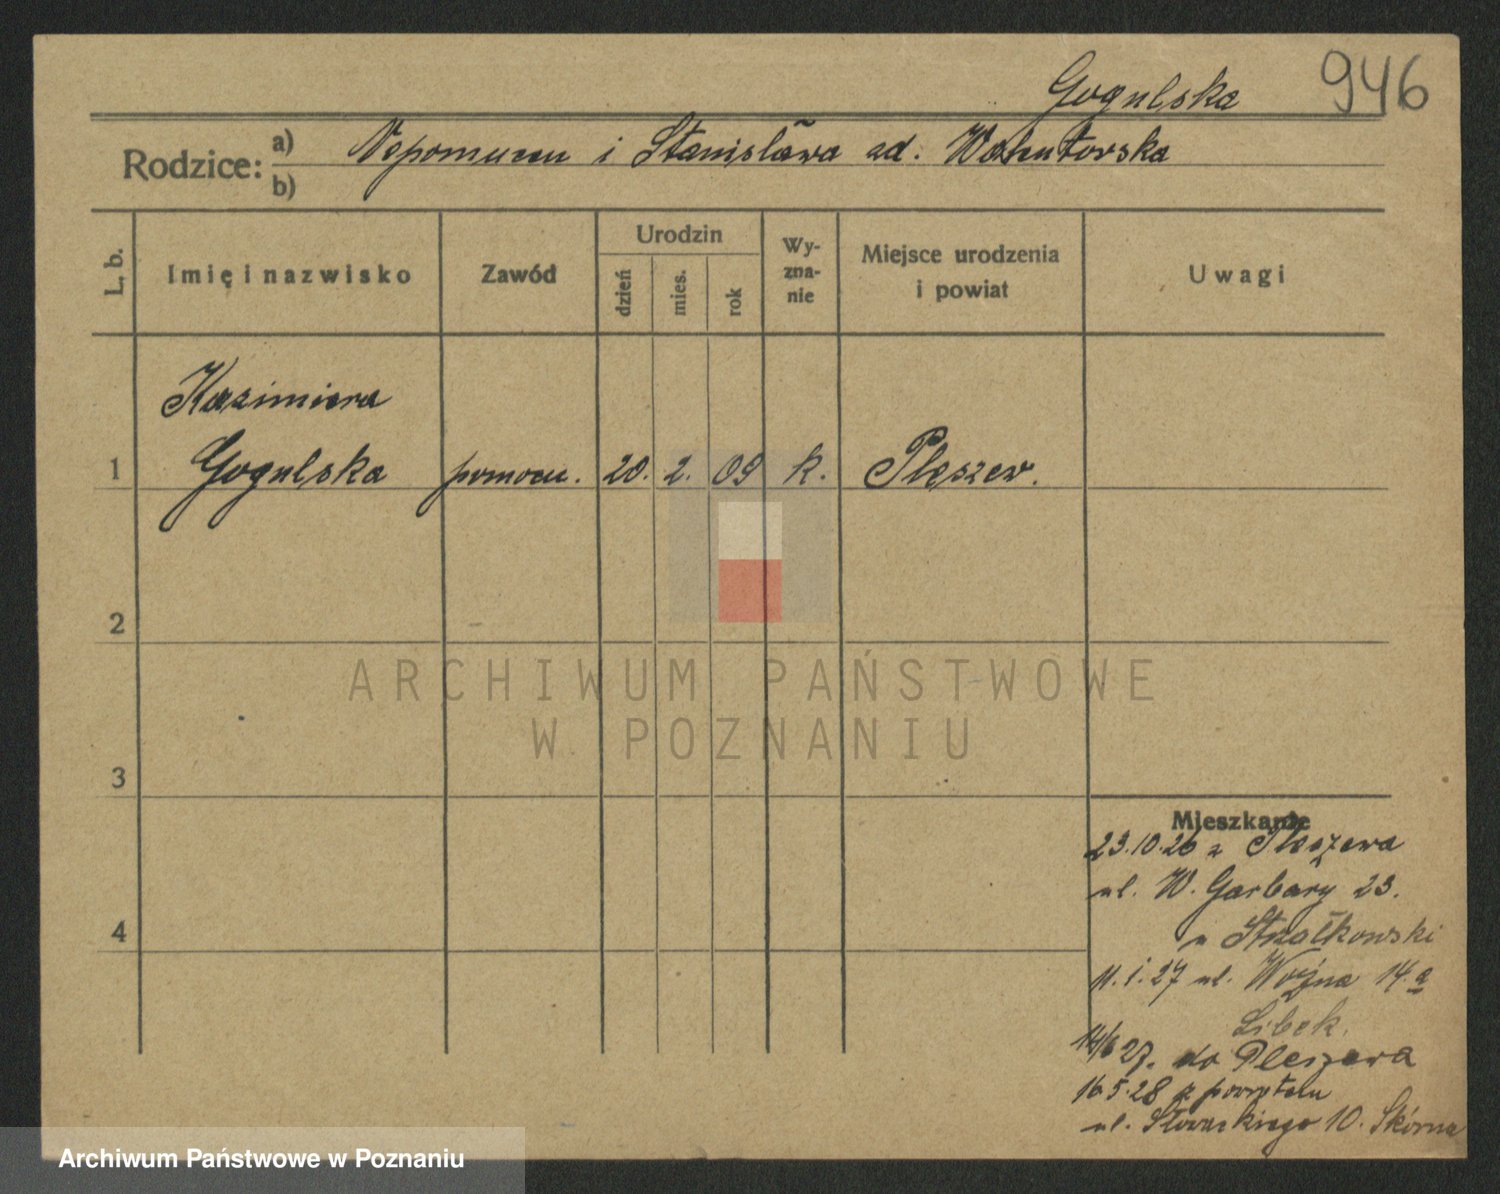 Gogulska 946
Rodzice: a) Nepomucen i Stanisława zd.
b)
L. b.
Imię i nazwisko
Zawód
Urodzin
dzień
mies.
rok
Wy-
zna-
nie
Miejsce urodzenia
i powiat
Uwagi
Kazimiera
1 Gogulska pomocn. 20. 2. 09 k. Pleszew.
2
ARCHIWUM PAŃSTWOWE
W POZNANIU
3
Mieszkanie
23.10.26 z Pleszewa
ul. W. Garbary 23.
u Strzałkowski
4
11.1.27 ul. Woźna 14.a
Libek.
14/6 27. do Pleszewa
16.5.28 z powrotem
ul. Słowackiego 10. Skórna
Archiwum Państwowe w Poznaniu